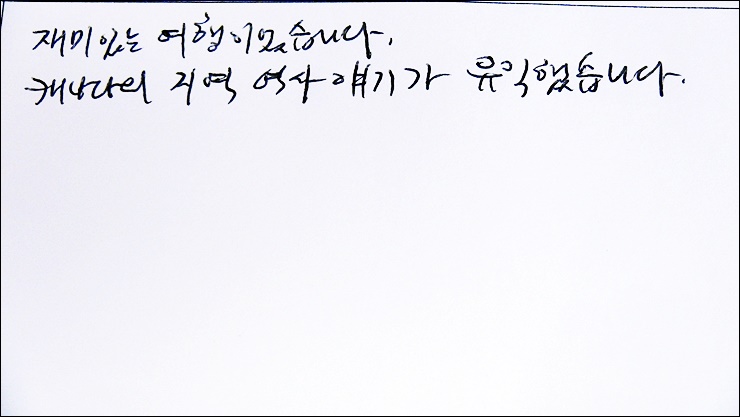 재미있는 여행이었습니다.
캐나다의 지역 역사 얘기가 유익했습니다.